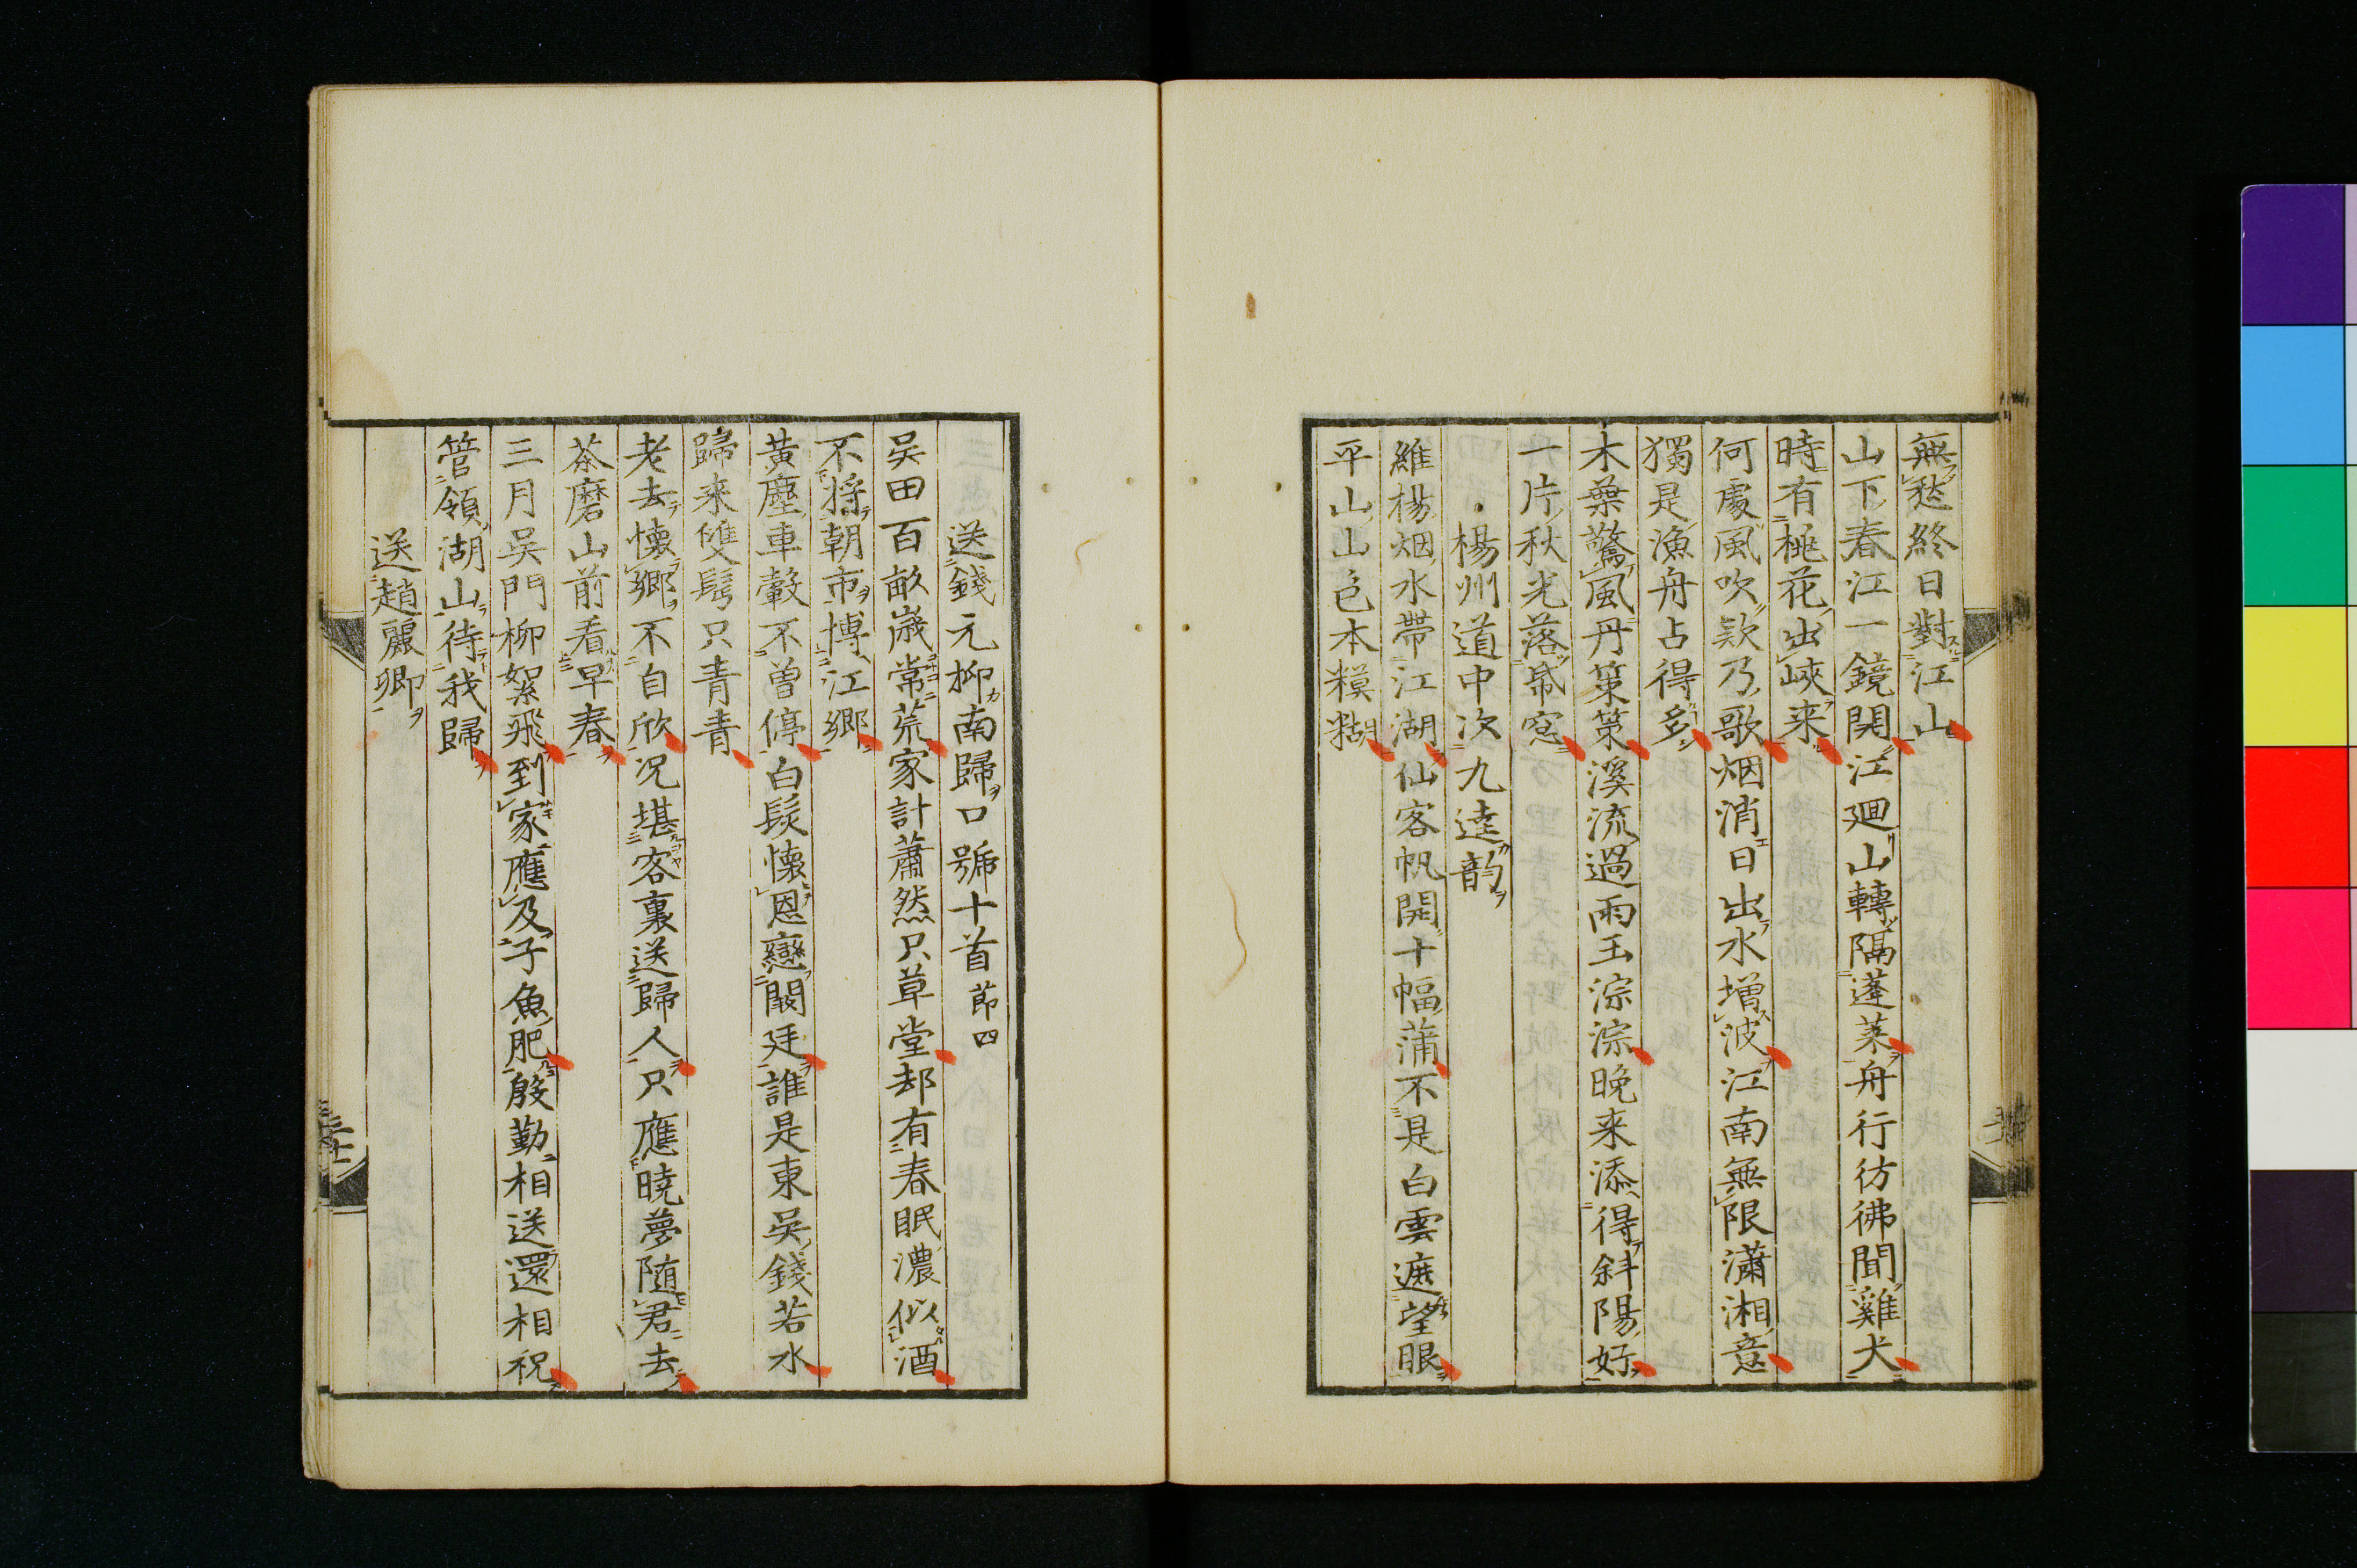 無愁終日對江山
山下春江一鏡開江廻山轉隔蓬莱舟行彷彿聞雞犬
時有桃花出峽来
何處風吹欵乃歌烟消日出水增波江南無限瀟湘意
獨是漁舟占得多
木葉驚風丹策策溪流過雨玉淙淙晚来添得斜陽好
一片秋光落幕窓
楊州道中次九逵韵
維楊烟水帶江湖仙客帆開十幅蒲不是白雲遮望眼
平山山色本糢糊
送錢元抑南歸口號十首節四
吴田百畝歳常荒家計蕭然只草堂却有春眠濃似酒
不將朝市博江鄉
黃塵車轂不曽停白髮懷恩戀闕廷誰是東吴錢若水
歸来雙鬂只青青
老去懷鄉不自欣况堪客裏送歸人只應曉夢随君去
茶磨山前看早春
三月吴門柳絮飛到家應及子魚肥殷勤相送還相祝
管領湖山待我歸
送趙麗卿